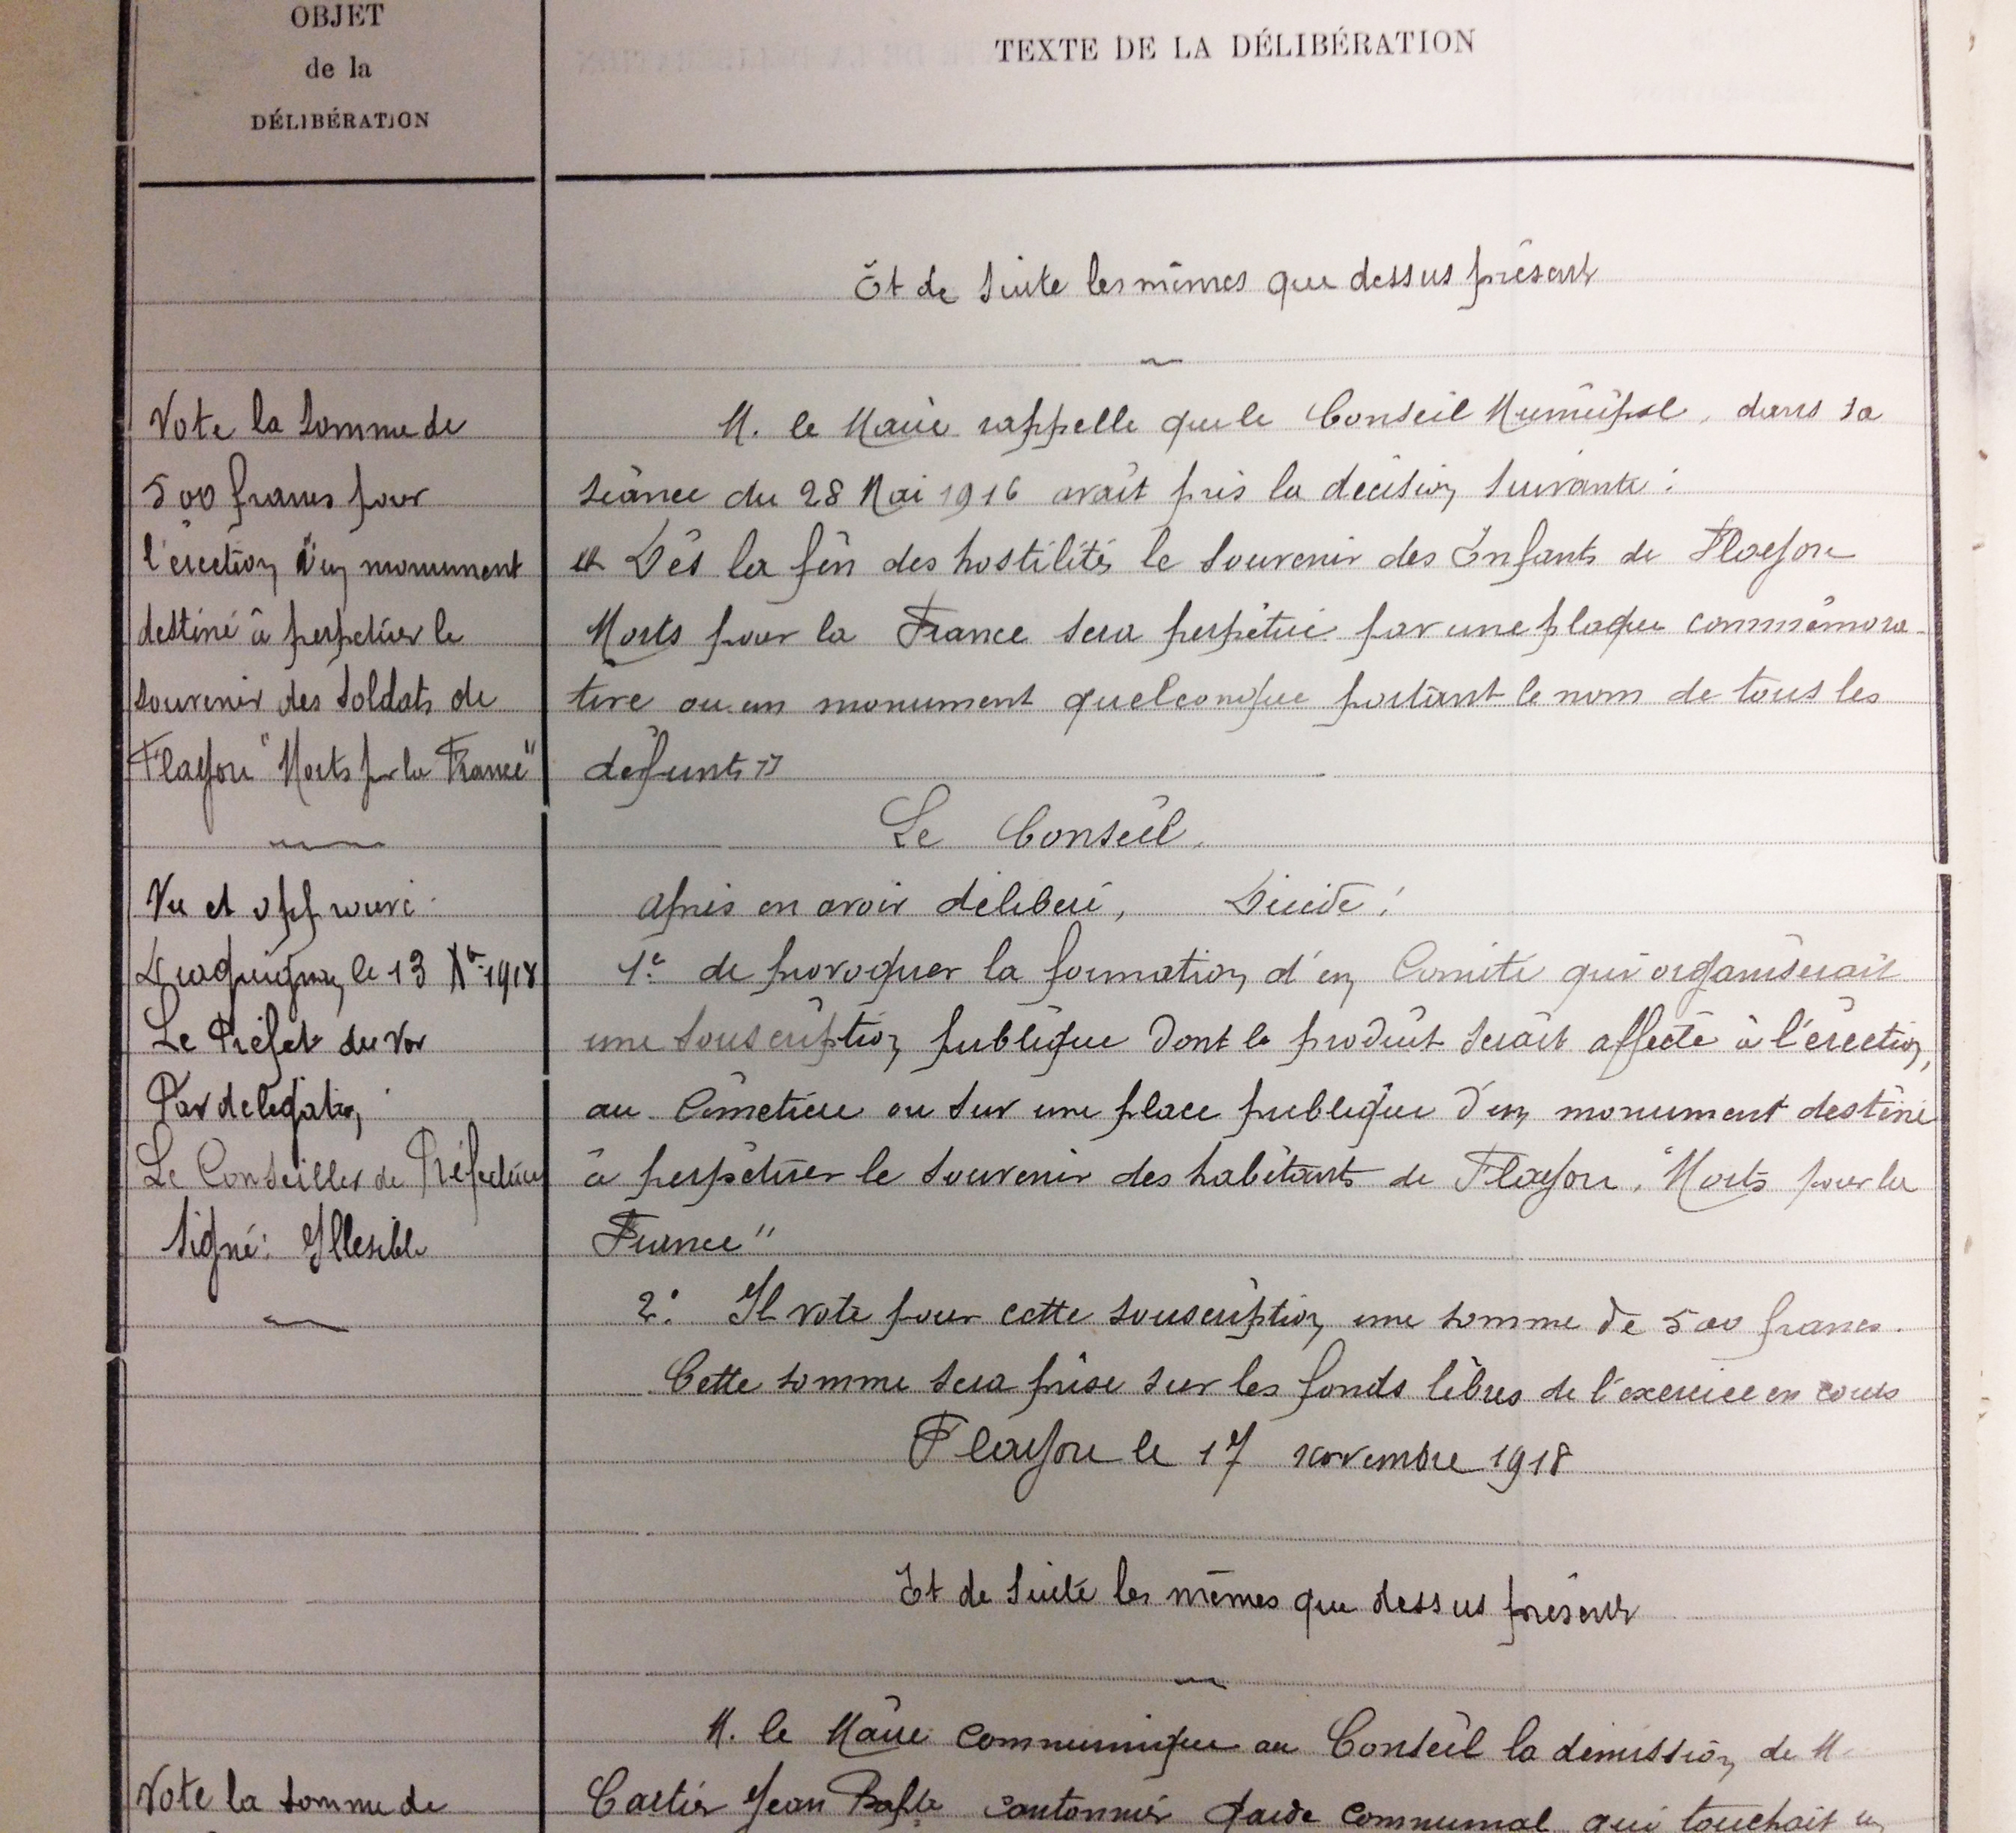 OBJET
de la
DÉLIBÉRATION
TEXTE DE LA DÉLIBÉRATION
Et de suite les mêmes que dessus présents
Vote la somme de
500 francs pour
l'érection d'un monument
destiné à perpétuer le
souvenir des soldats de
Flayosc "Morts pr la France"
Vu et approuvé
Draguignan, le 13 Xbre 1918
Le Préfet du Var
Par délégation,
Le Conseiller de Préfecture
Signé: Illesible
M. le Maire rappelle que le Conseil Municipal, dans sa
séance du 28 Mai 1916 avait pris la décision suivante:
« Dès la fin des hostilités le souvenir des Enfants de Flayosc
Morts pour la France sera perpétué par une plaque commémora-
tive ou un monument quelconque portant le nom de tous les
défunts »
Le Conseil,
après en avoir délibéré, Décide:
1° de provoquer la formation d'un Comité qui organiserait
une souscription publique dont le produit serait affecté à l'érection,
au Cimetière ou sur une place publique d'un monument destiné
à perpétuer le souvenir des habitants de Flayosc, "Morts pour la
France"
2° Il vote pour cette souscription une somme de 500 francs.
Cette somme sera prise sur les fonds libres de l'exercice en cours
Flayosc le 17 novembre 1918
Et de suite les mêmes que dessus présents
Vote la somme de
M. le Maire communique au Conseil la démission de M.
Cartier Jean Bapte cantonnier garde communal qui touchait un